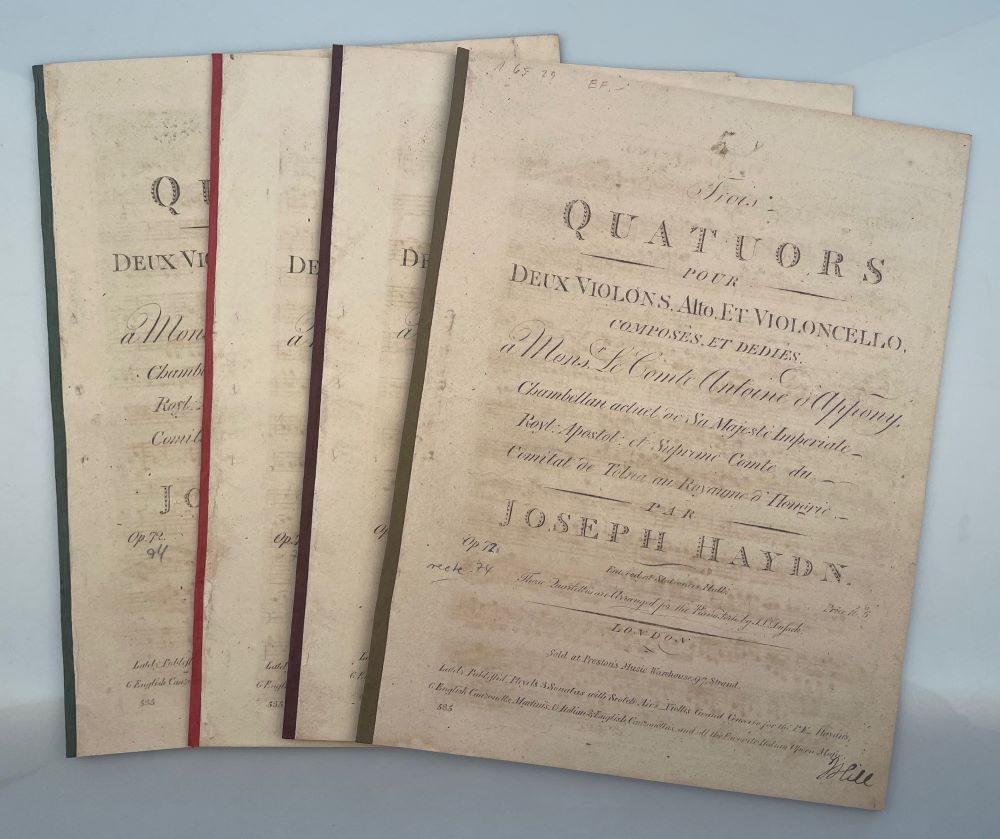 QU
DEUX VIO
à Mons
Chambe
Royl:
Comit
JO
Op. 72.
94
Lately Publish'd
6 English Canzo
585
DE
à
Op. 7
Lately
6 English
585
DE
à
Op. 7
6 English
585
1 65 29
EF.-
5
Trois
QUATUORS
POUR
DEUX VIOLONS, Alto, ET VIOLONCELLO,
COMPOSÉS, ET DEDIÉS,
à Mons.r Le Comte Antoine d'Appony,
Chambellan actuel de Sa Majesté Imperiale
Royl: Apostol: et Supreme Comte du
Comitat de Tolna au Royaume d'Hongrie
PAR
JOSEPH HAYDN.
Op. 72.
recte 74
Entered at Stationers Hall,
Price 10.s 6.d
These Quartettos are Arranged for the Piano Forte by J.L. Dusick.
LONDON
Sold at Preston's Music Warehouse, 97, Strand.
Lately Publish'd, Pleyels 3 Sonatas with Scotch Airs, Viottis Grand Concerto, for the P.F., Haydns,
6 English Canzonetts, Martinis, 6 Italian & English Canzonettas, and all the Favorite Italian Opera Music.
585
Hill